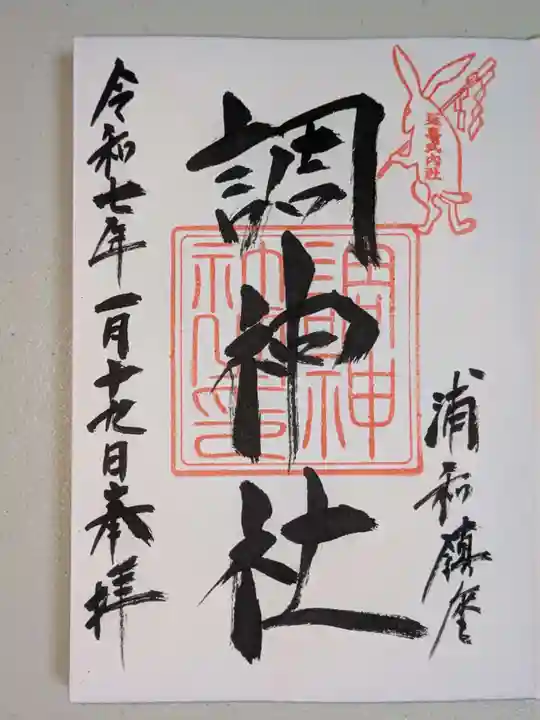 延喜式内社
浦和鎮座
調神社
調神
社之印
令和七年一月十九日奉拝